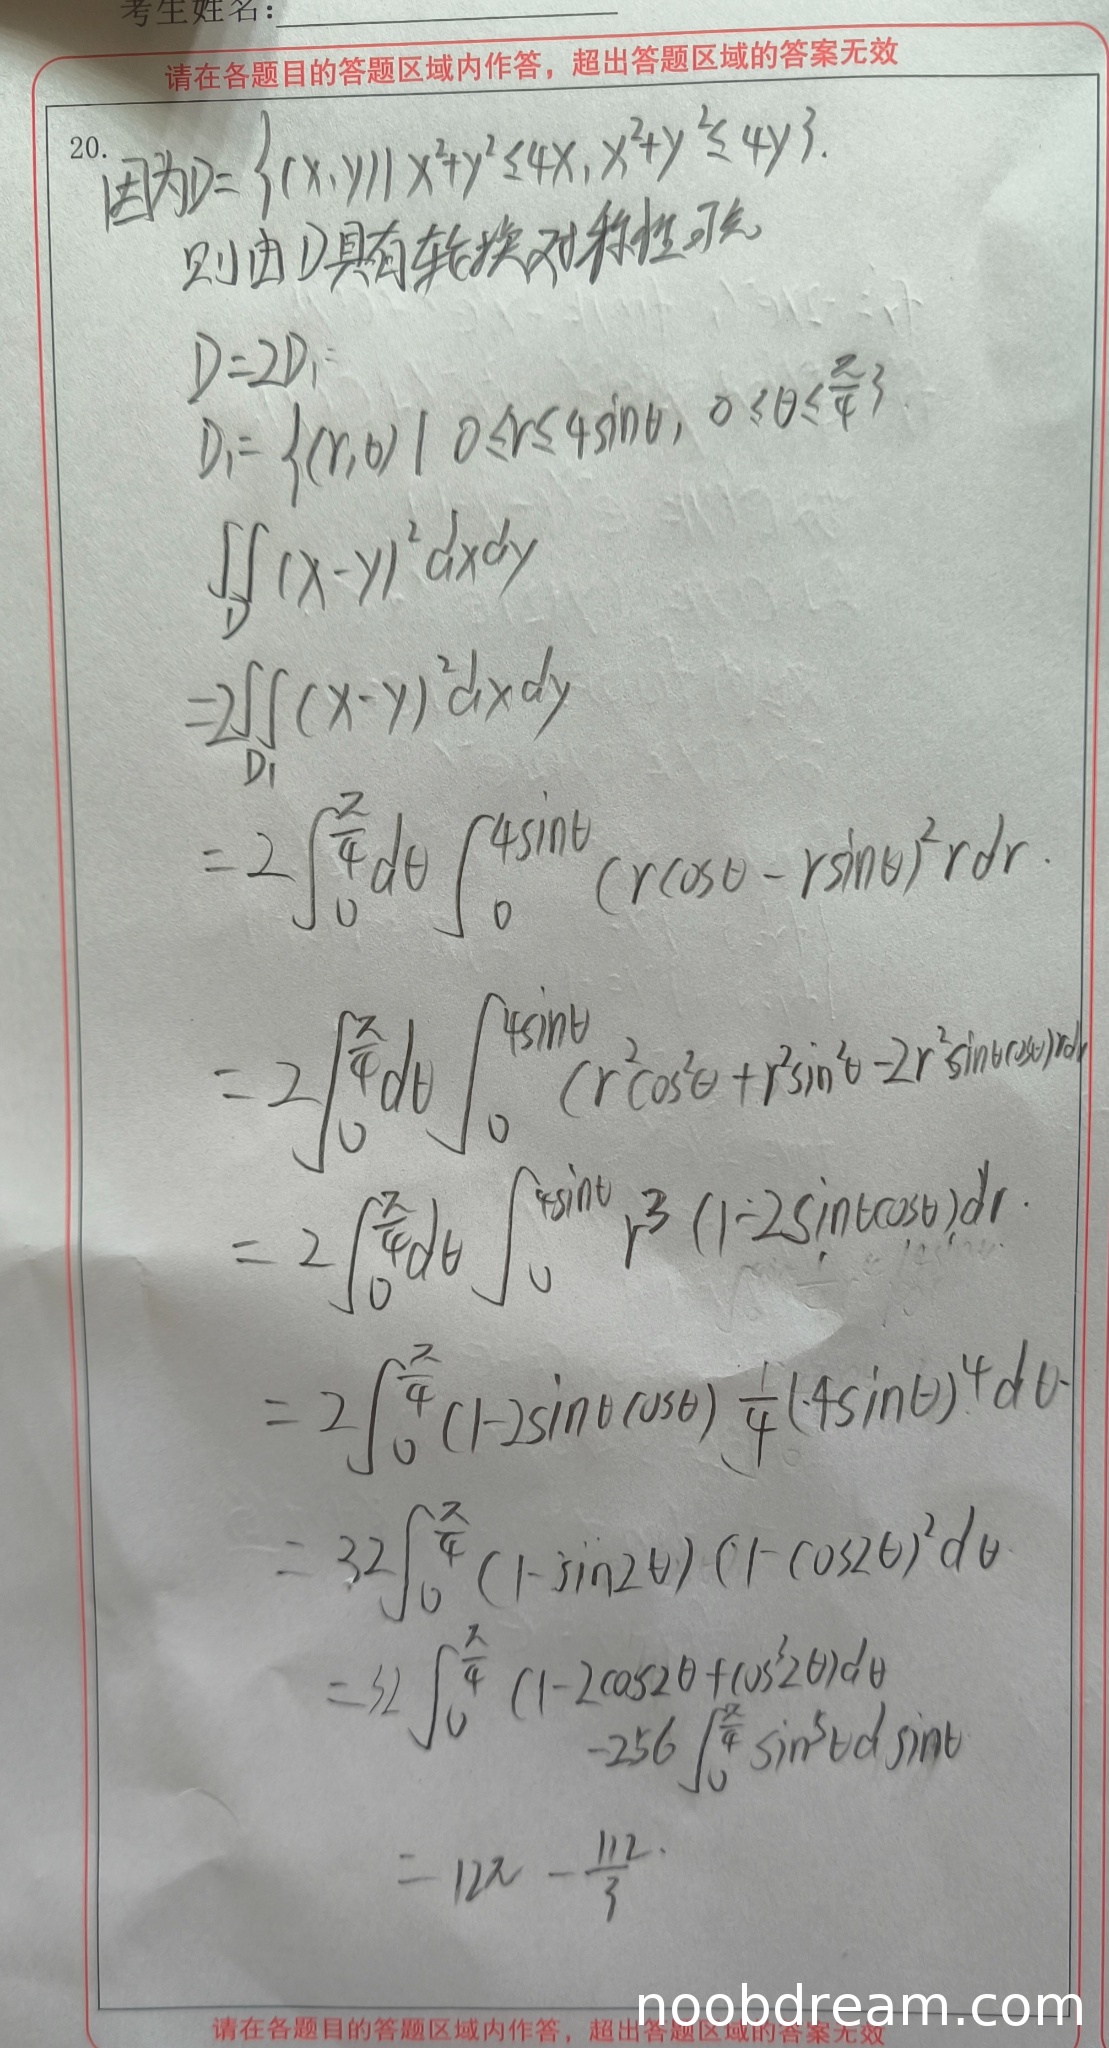 考生姓名：
请在各题目的答题区域内作答，超出答题区域的答案无效
20.
因为D={(x,y)| x²+y²≤4x, x²+y²≤4y}.
则由D具有轮换对称性
D=2D₁
D₁={(r,θ) | 0≤r≤4sinθ, 0≤θ≤π/4}
∬_D (x-y)²dxdy
=2∬_D₁ (x-y)²dxdy
=2∫₀^(π/4) dθ ∫₀^(4sinθ) (rcosθ-rsinθ)² rdr.
=2∫₀^(π/4) dθ ∫₀^(4sinθ) (r²cos²θ+r²sin²θ-2r²sinθcosθ)rdr
=2∫₀^(π/4) dθ ∫₀^(4sinθ) r³ (1-2sinθcosθ)dr.
=2∫₀^(π/4) (1-2sinθcosθ) 1/4 (4sinθ)⁴dθ
=32∫₀^(π/4) (1-sin2θ) (1-cos2θ)²dθ
=32∫₀^(π/4) (1-2cos2θ+cos²2θ)dθ
-256∫₀^(π/4) sin⁵θdsinθ
=12π - 112/3.
请在各题目的答题区域内作答，超出答题区域的答案无效
noobdream.com